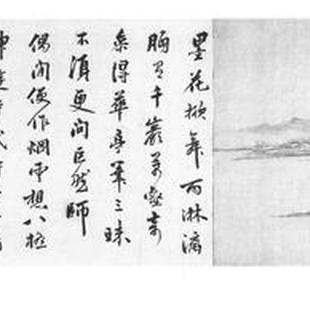 墨花掀舞雨淋漓
胸有千巖萬壑奇
參得華亭筆三昧
不須更問巨然師
偶閒便作烟雲想八極
神遊